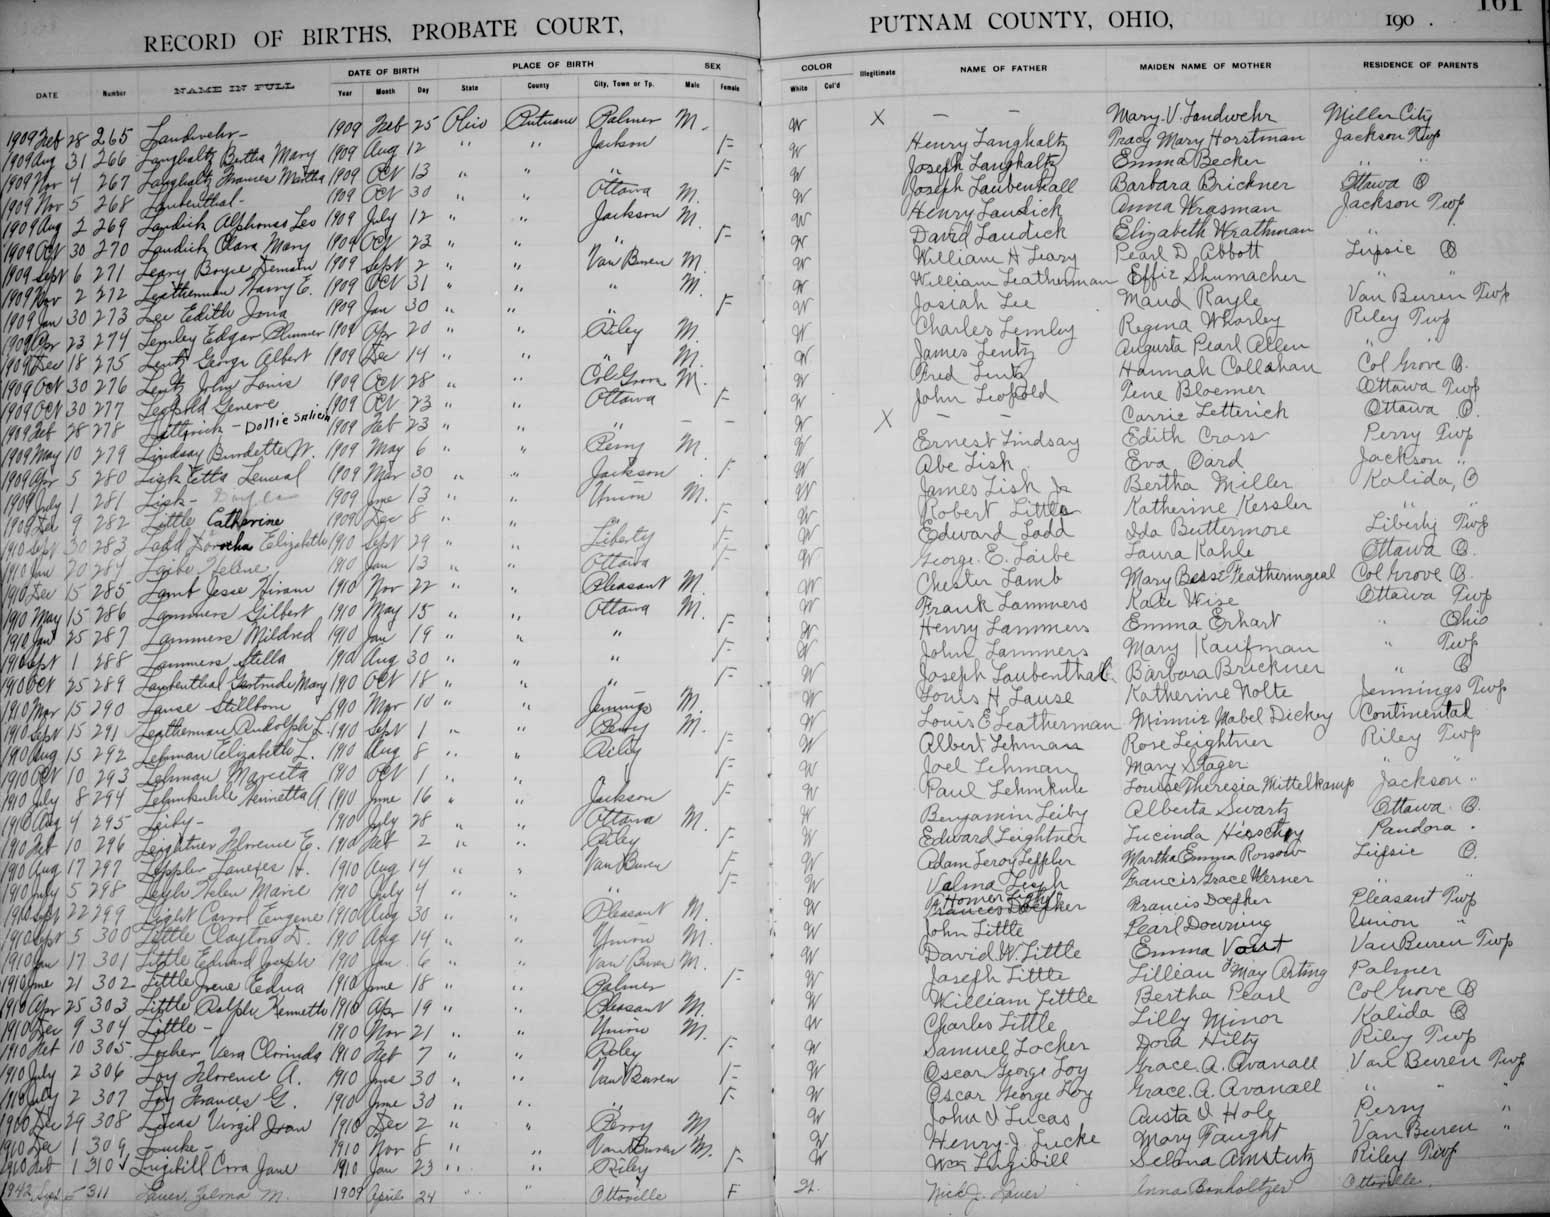 161
RECORD OF BIRTHS, PROBATE COURT, PUTNAM COUNTY, OHIO, 190 .
DATE Number NAME IN FULL DATE OF BIRTH Year Month Day PLACE OF BIRTH State County City, Town or Tp. SEX Male Female COLOR White Col'd Illegitimate NAME OF FATHER MAIDEN NAME OF MOTHER RESIDENCE OF PARENTS
1909 Feb 28 265 Landwehr- 1909 Feb 25 Ohio Putnam Palmer M. W X - - Mary. V. Landwehr Miller City
1909 Aug 31 266 Langhaltz Bertha Mary 1909 Aug 12 " " Jackson F W Henry Langhaltz Tracy Mary Horstman Jackson Twp
1909 Nov 4 267 Langhaltz Frances Martha 1909 Oct 13 " " " F W Joseph Langhaltz Emma Becker " "
1909 Nov 5 268 Laubenthal- 1909 Oct 30 " " Ottawa M. W Joseph Laubenthall Barbara Brickner Ottawa O
1909 Aug 2 269 Laudick Alphonas Leo 1909 July 12 " " Jackson M. W Henry Laudick Anna Wrasman Jackson Twp
1909 Oct 30 270 Laudick Clara Mary 1909 Oct 23 " " " F W David Laudick Elizabeth Wrathman " "
1909 Sept 6 271 Leary Boyce Denison 1909 Sept 2 " " Van Buren M. W William H Leary Pearl D. Abbott Leipsic O
1909 Nov 2 272 Leatherman Harry E. 1909 Oct 31 " " " M. W William Leatherman Effie Shumacher " "
1909 Jan 30 273 Lee Edith Iona 1909 Jan 30 " " " F W Josiah Lee Maud Rayle Van Buren Twp
1909 Apr 23 274 Lemley Edgar Plummer 1909 Apr 20 " " Riley M. W Charles Lemley Regina Whorley Riley Twp
1909 Dec 18 275 Lentz George Albert 1909 Dec 14 " " " M. W James Lentz Augusta Pearl Allen " "
1909 Oct 30 276 Lentz John Louis 1909 Oct 28 " " Col. Grove M. W Fred Lentz Hannah Callahan Col Grove O.
1909 Oct 30 277 Leopold Geneve 1909 Oct 23 " " Ottawa F W John Leopold Tene Bloemer Ottawa Twp
1909 Feb 28 278 Letterick - Dollie 1909 Feb 23 " " " - - W X - - Carrie Letterich Ottawa O.
1909 May 10 279 Lindsay Burdette W. 1909 May 6 " " Perry M. W Ernest Lindsay Edith Cross Perry Twp
1909 Apr 5 280 Lisk Etta Leneal 1909 Mar 30 " " Jackson F W Abe Lisk Eva Oard Jackson "
1909 July 1 281 Lisk- 1909 June 13 " " Union M. W James Lisk Jr Bertha Miller Kalida, O
1909 Dec 9 282 Little Catherine 1909 Dec 8 " " " F W Robert Little Katherine Kessler " "
1910 Sept 30 283 Ladd Elizabeth 1910 Sept 29 " " Liberty F W Edward Ladd Ida Buttermore Liberty Twp
1910 Jan 20 284 Laibe Helene 1910 Jan 13 " " Ottawa F W George. E. Laibe Laura Kahle Ottawa O.
1910 Dec 15 285 Lamb Jesse Hiram 1910 Nov 22 " " Pleasant M. W Chester Lamb Mary Besse Featheringeal Col Grove O.
1910 May 15 286 Lammers Gilbert 1910 May 15 " " Ottawa M. W Frank Lammers Kate Wize Ottawa Twp
1910 Jan 25 287 Lammers Mildred 1910 Jan 19 " " " F W Henry Lammers Emma Erhart " Ohio
1910 Sept 1 288 Lammers Stella 1910 Aug 30 " " " F W John Lammers Mary Kaufman " Twp
1910 Oct 25 289 Laubenthal Gertrude Mary 1910 Oct 18 " " " F W Joseph Laubenthal Barbara Brickner " O
1910 Mar 15 290 Lause Stillborn 1910 Mar 10 " " Jennings M. W Louis H Lause Katherine Nolte Jennings Twp
1910 Sept 15 291 Leatherman Rudolph L. 1910 Sept 1 " " Perry M. W Louis E Leatherman Minnie Mabel Dickey Continental
1910 Aug 15 292 Lehman Elizabeth L. 1910 Aug 8 " " Riley F W Albert Lehman Rose Leightner Riley Twp
1910 Oct 10 293 Lehman Marieta 1910 Oct 1 " " " F W Joel Lehman Mary Stager " "
1910 July 8 294 Lehmkuhle A 1910 June 16 " " Jackson F W Paul Lehmkule Louise Theresia Mittelkamp Jackson "
1910 Aug 4 295 Leiby- 1910 July 28 " " Ottawa M. W Benjamin Leiby Alberta Swartz Ottawa O.
1910 Feb 10 296 Leightner Florence E. 1910 Feb 2 " " Riley F W Edward Leightner Lucinda Pandora .
1910 Aug 17 297 Leppler H. 1910 Aug 14 " " Van Buren F W Adam Leroy Leffler Martha Emma Rossow Leipsic O.
1910 July 5 298 Leyh Helen Marie 1910 July 4 " " " F W Valma Francis Grace Werner " "
1910 Sept 22 299 Light Carrol Eugene 1910 Aug 30 " " Pleasant M. W Homer Light Francis Doefker Pleasant Twp
1910 Sept 5 300 Little Clayton D. 1910 Aug 14 " " Union M. W John Little Pearl Downing Union "
1910 Jan 17 301 Little Edward Joseph 1910 Jan 6 " " Van Buren M. W David W. Little Emma Vout Van Buren Twp
1910 June 21 302 Little Irene Edna 1910 June 18 " " Palmer F W Joseph Little Lillian May Arting Palmer
1910 Apr 25 303 Little Ralph Kenneth 1910 Apr 19 " " Pleasant M. W William Little Bertha Pearl Col Grove O
1910 Dec 9 304 Little - 1910 Nov 21 " " Union M. W Charles Little Lilly Minor Kalida O
1910 Feb 10 305 Locher Vera Clorinda 1910 Feb 7 " " Riley F W Samuel Locher Dora Hilty Riley Twp
1910 July 2 306 Loy Florence A. 1910 June 30 " " Van Buren F W Oscar George Loy Grace. A. Avanall Van Buren Twp
1910 July 2 307 Loy Frances G. 1910 June 30 " " " F W Oscar George Loy Grace. A. Avanall " " "
1910 Dec 29 308 Lucas Virgil Ivan 1910 Dec 2 " " Perry M W John I Lucas Austa I Hole Perry "
1910 Dec 1 309 Lucke- 1910 Nov 8 " " Van Buren M. W Henry. J. Lucke Mary Faught Van Buren "
1910 Feb 1 310 Lugibill Cora Jane 1910 Jan 23 " " Riley F W Wm Lugibill Selona Amstutz Riley Twp
1942 Sept 5 311 Lauer, Zelma M. 1909 April 24 " " Ottoville F W. Nick J. Lauer Anna Bonholtzer Ottoville.